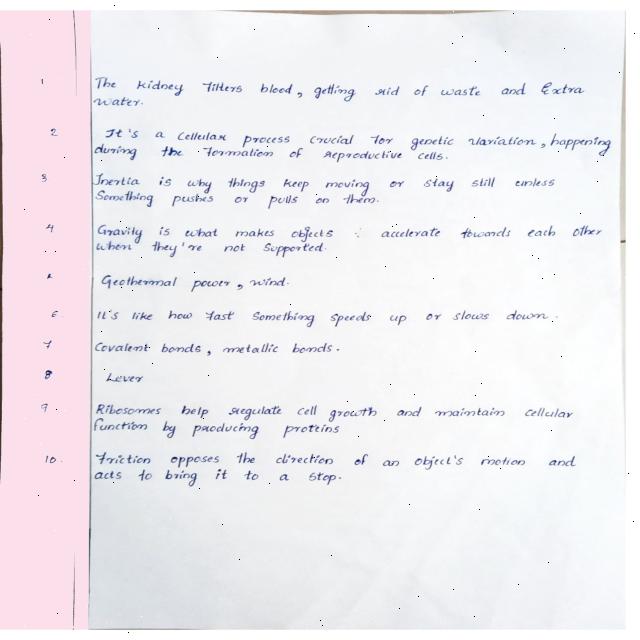 1 The kidney filters blood, getting rid of waste and Extra
water.
2 It's a cellular process crucial for genetic variation, happening
during the formation of reproductive cells.
3 Inertia is why things keep moving or stay still unless
Something pushes or pulls on them.
4 Gravity is what makes objects : accelerate towards each other
when they're not supported.
Geothermal power, wind.
6 It's like how fast something speeds up or slows down.
7 Covalent bonds, metallic bonds.
8 Lever
9. Ribosomes help regulate cell growth and maintain cellular
function by producing proteins
10. Friction opposes the direction of an object's motion and
acts to bring it to a stop.